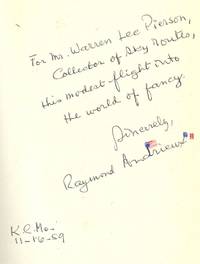 For Mr. Warren Lee Pierson,
Collector of Sky Routes,
this modest flight into
the world of fancy.
Sincerely,
Raymond Andrieux
11-16-59